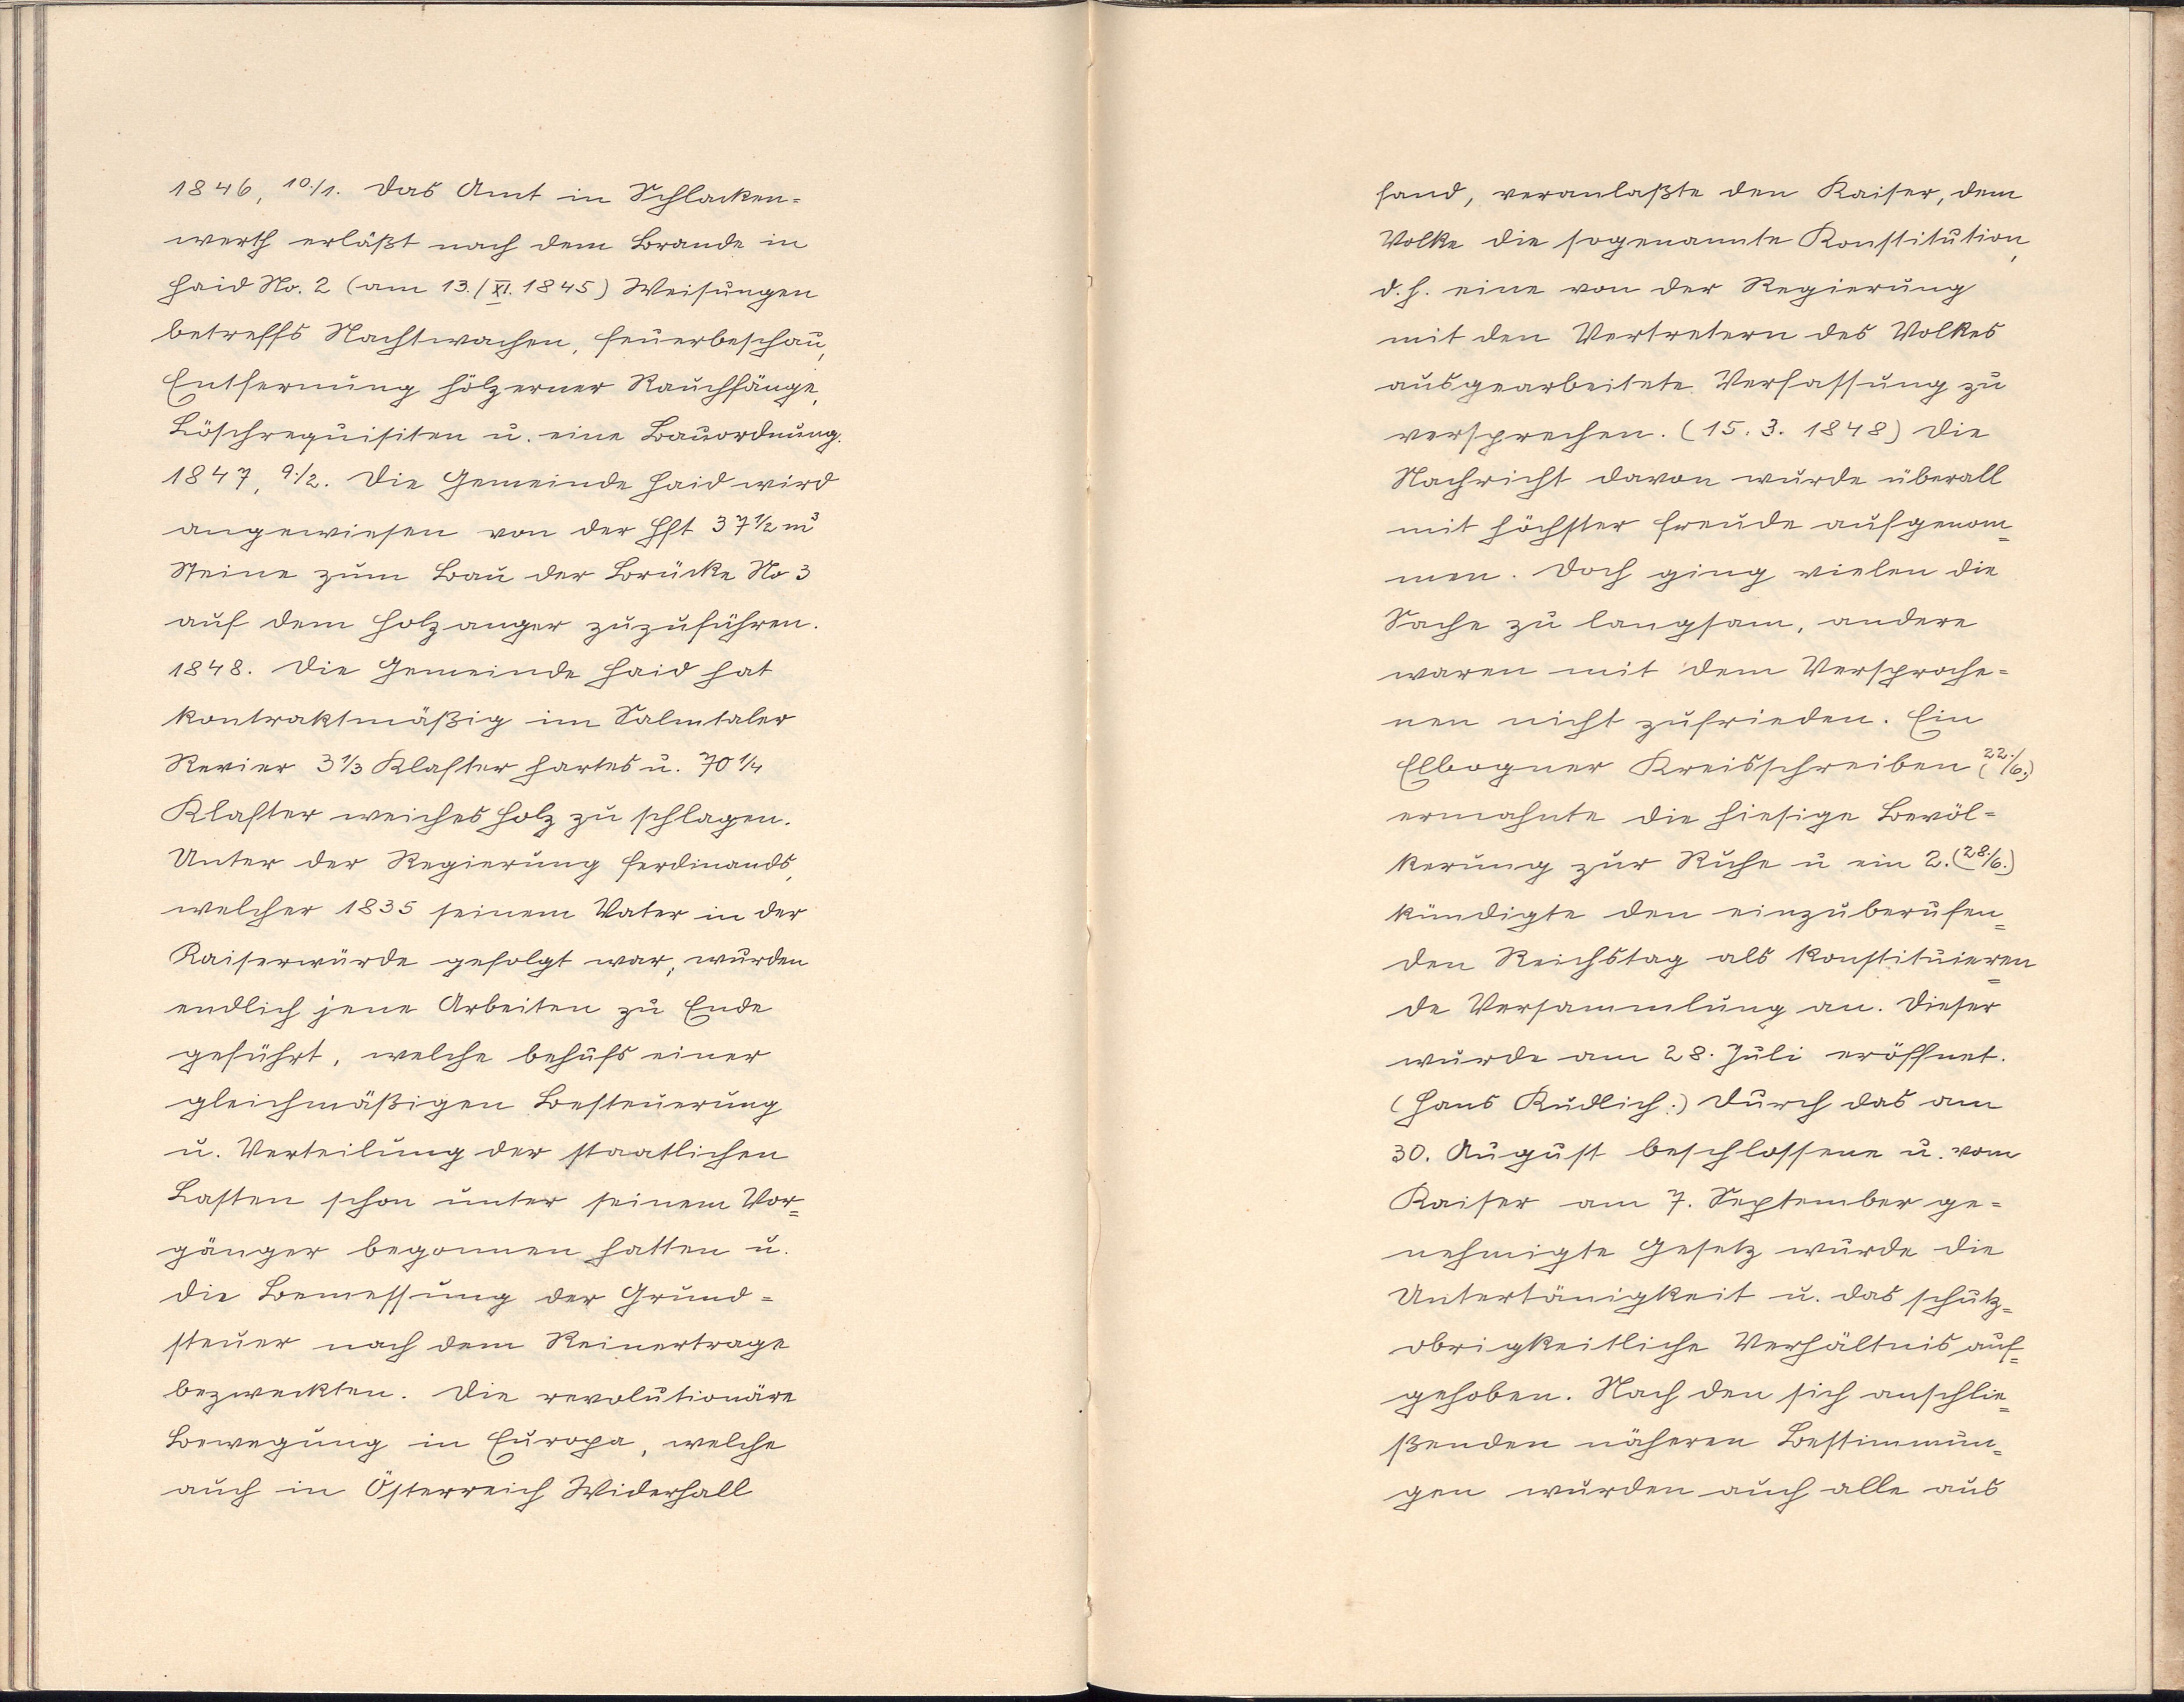 1846, 10./1. Das Amt in Schlacken-
werth erläßt nach dem Brande in
Haid No. 2 (am 13./XI. 1845) Weisungen
betreffs Nachtwachen, Feuerbeschau,
Entfernung hölzerner Rauchfänge,
Löschrequisiten u. eine Bauordnung.
1847, 9./2. Die Gemeinde Haid wird
angewiesen von der Hft 37 1/2 m³
Steine zum Bau der Brücke No 3
auf dem Holzanger zuzuführen.
1848. Die Gemeinde Haid hat
kontraktmäßig im Salmtaler
Revier 3 1/3 Klafter hartes u. 70 1/4
Klafter weiches Holz zu schlagen.
Unter der Regierung Ferdinands,
welcher 1835 seinem Vater in der
Kaiserwürde gefolgt war, wurden
endlich jene Arbeiten zu Ende
geführt, welche behufs einer
gleichmäßigen Besteuerung
u. Verteilung der staatlichen
Lasten schon unter seinem Vor=
gänger begonnen hatten u.
die Bemessung der Grund=
steuer nach dem Reinertrage
bezweckten. Die revolutionäre
Bewegung in Europa, welche
auch in Österreich Widerhall
fand, veranlaßte den Kaiser, dem
Volke die sogenannte Konstitution,
d. h. eine von der Regierung
mit den Vertretern des Volkes
ausgearbeitete Verfassung zu
versprechen. (15. 3. 1848) Die
Nachricht davon wurde überall
mit höchster Freude aufgenom=
men. Doch ging vielen die
Sache zu langsam, andere
waren mit dem Versproche=
nen nicht zufrieden. Ein
Elbogner Kreisschreiben (22./6.)
ermahnte die hiesige Bevöl=
kerung zur Ruhe u ein 2. (28./6.)
kündigte den einzuberufen=
den Reichstag als konstituieren=
de Versammlung an. Dieser
wurde am 28. Juli eröffnet.
(Hans Kudlich.) Durch das am
30. August beschlossene u. vom
Kaiser am 7. September ge=
nehmigte Gesetz wurde die
Untertänigkeit u. das schutz=
obrigkeitliche Verhältnis auf=
gehoben. Nach den sich anschlie=
ßenden näheren Bestimmun=
gen wurden auch alle aus